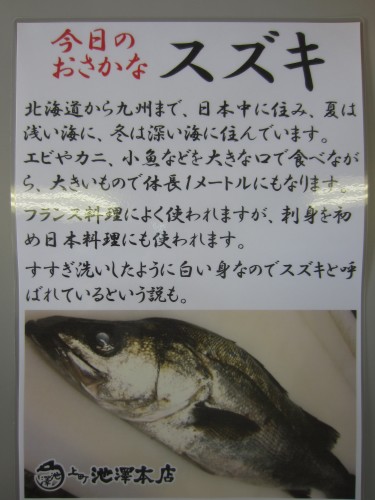 今日の
おさかな
スズキ
北海道から九州まで、日本中に住み、夏は
浅い海に、冬は深い海に住んでいます。
エビやカニ、小魚などを大きな口で食べなが
ら、大きいもので体長1メートルにもなります。
フランス料理によく使われますが、刺身を初
め日本料理にも使われます。
すすぎ洗いしたように白い身なのでスズキと呼
ばれているという説も。
上町
池澤本店